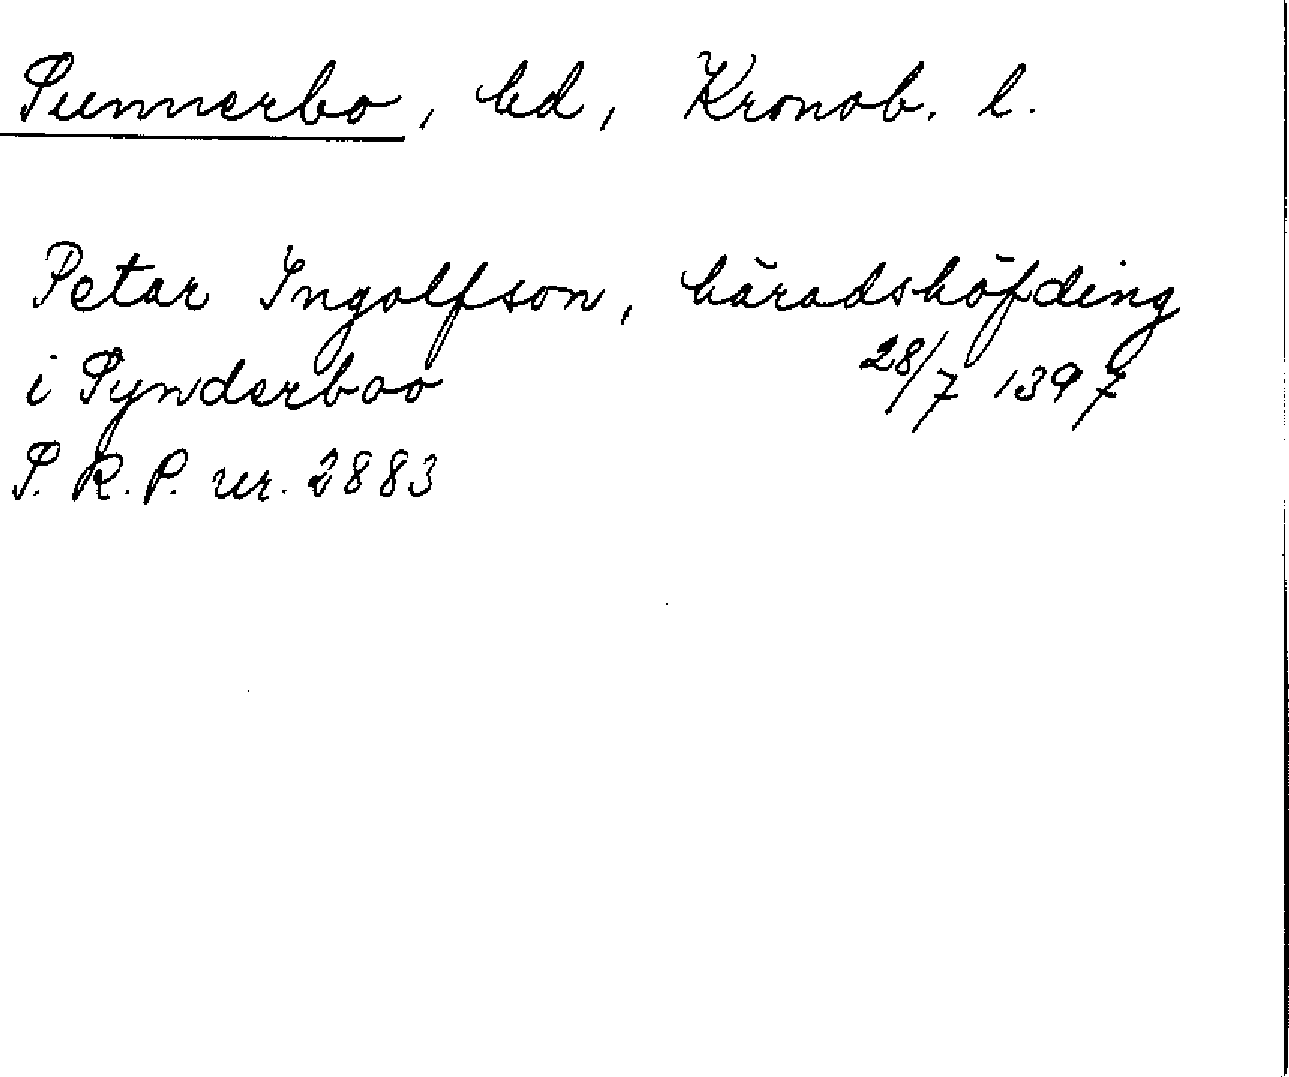 Sunnerbo, hd, Kronob. l.
Petar Ingolfson, häradshöfding
i Synderboo 28/7 1397
S. R. P. nr. 2883